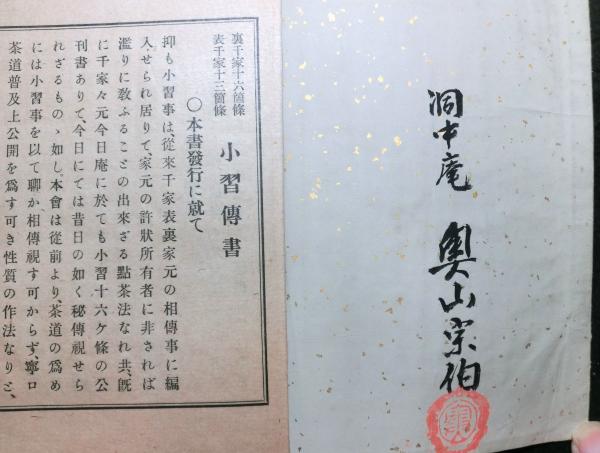 洞中庵 奥山宗伯
裏千家十六箇條
表千家十三箇條
小習傳書
○本書發行に就て
抑も小習事は、從來千家表裏家元の相傳事に編
入せられ居りて、家元の許狀所有者に非されば
濫りに敎ふることの出來ざる點茶法なれ共、既
に千家々元今日庵に於ても小習十六ケ條の公
刊書ありて、今日にては昔日の如く秘傳視せら
れざるものゝ如し。本會は從前より、茶道の爲め
には小習事を以て聊か相傳視す可からず、寧ロ
茶道普及上公開を爲す可き性質の作法なりと、